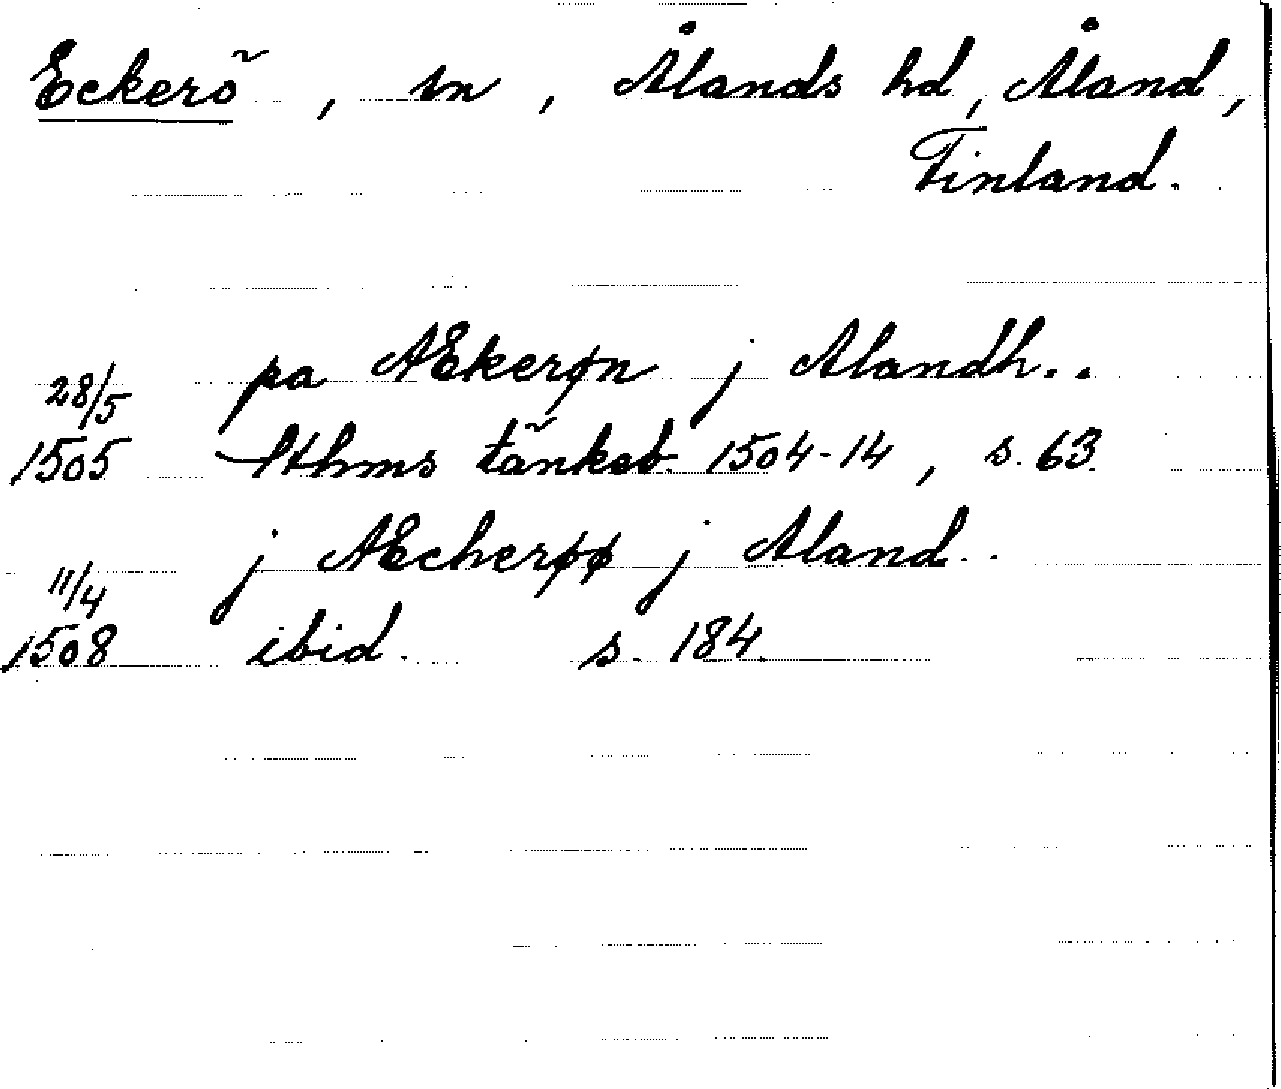 Eckerö, sn, Ålands hd, Åland,
Finland.
pa Ækerøn j Alandh..
28/5
1505 Sthms tänkeb. 1504-14, s. 63.
j Æcherøø j Aland..
11/4
1508 ibid. s. 184.